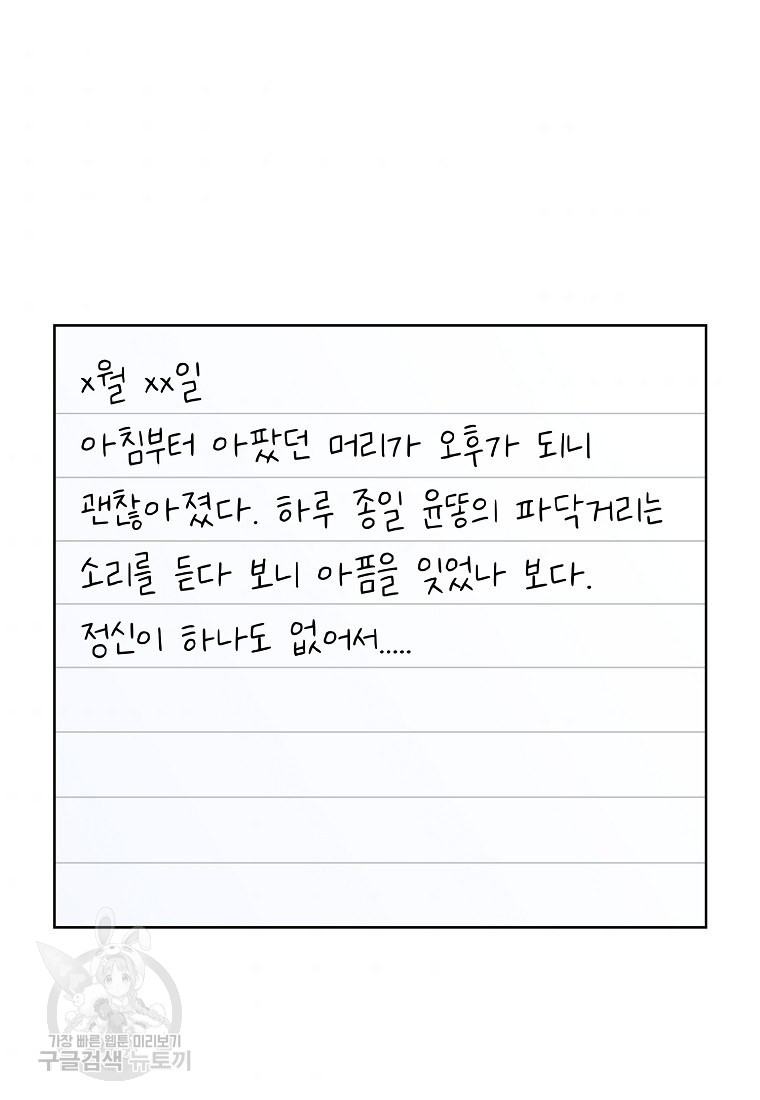 x월 xx일
아침부터 아팠던 머리가 오후가 되니
괜찮아졌다. 하루 종일 윤똥의 파닥거리는
소리를 듣다 보니 아픔을 잊었나 보다.
정신이 하나도 없어서.....
가장 빠른 웹툰 미리보기
구글검색 뉴토끼